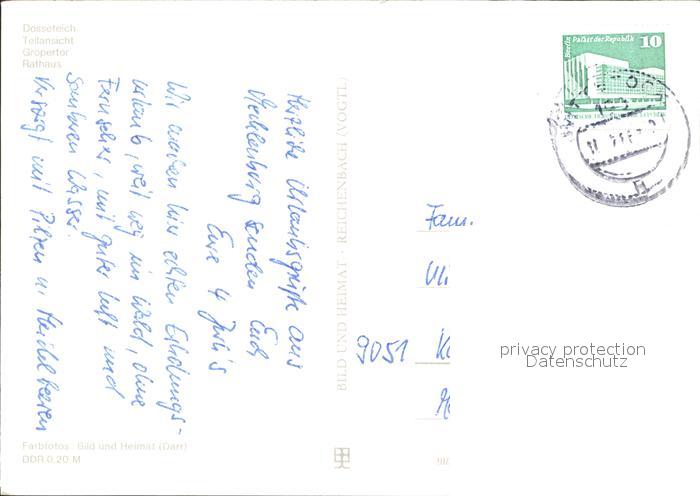 Dosseteich
Teilansicht
Gröpertor
Rathaus
Herzliche Urlaubsgrüße aus
Mecklenburg senden Euch
Eure 4
Wir machen hier echten Erholungs-
urlaub, weit weg im Wald, ohne
Fernseher, mit guter Luft und
sauberen Wasser.
Versorgt mit Pilzen u. Heidelbeeren
Farbfotos: Bild und Heimat (Darr)
DDR 0,20 M
BILD UND HEIMAT · REICHENBACH (VOGTL)
Berlin Palast der Republik 10
Fam.
9051
privacy protection
Datenschutz